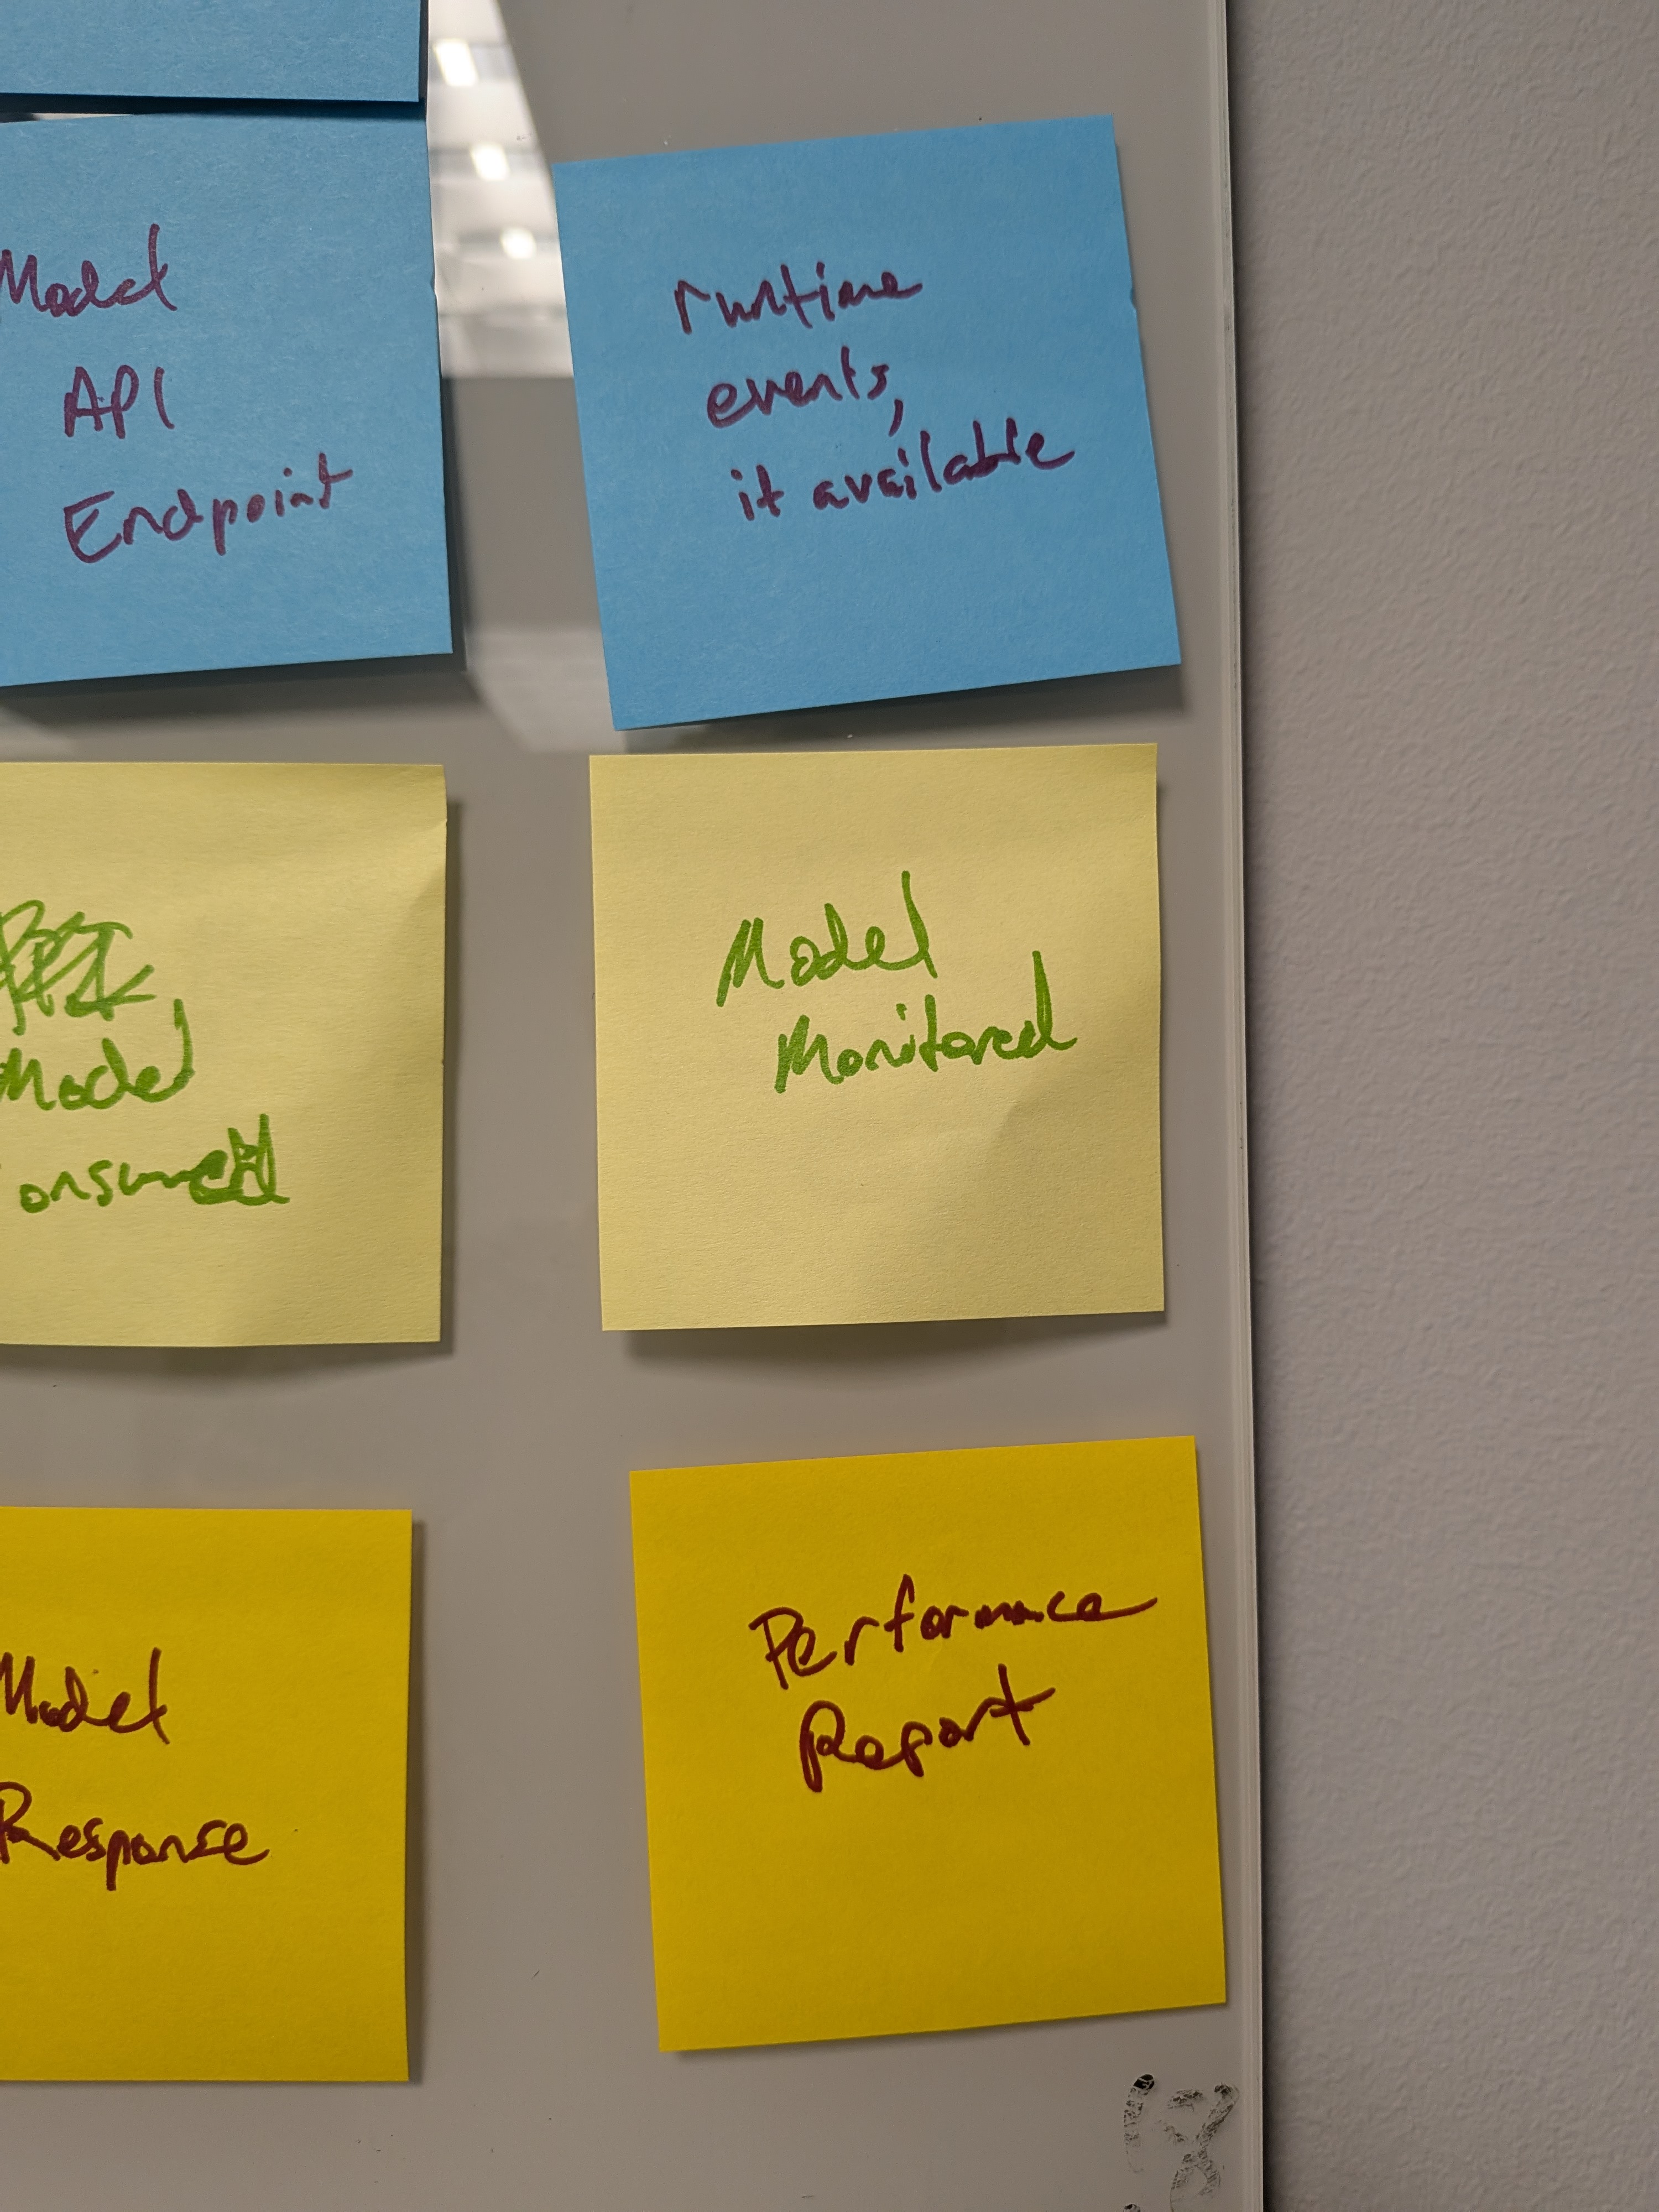 Model
API
Endpoint
runtime
events,
if available
Model
onsumed
Model
Monitored
Model
Response
Performance
Report